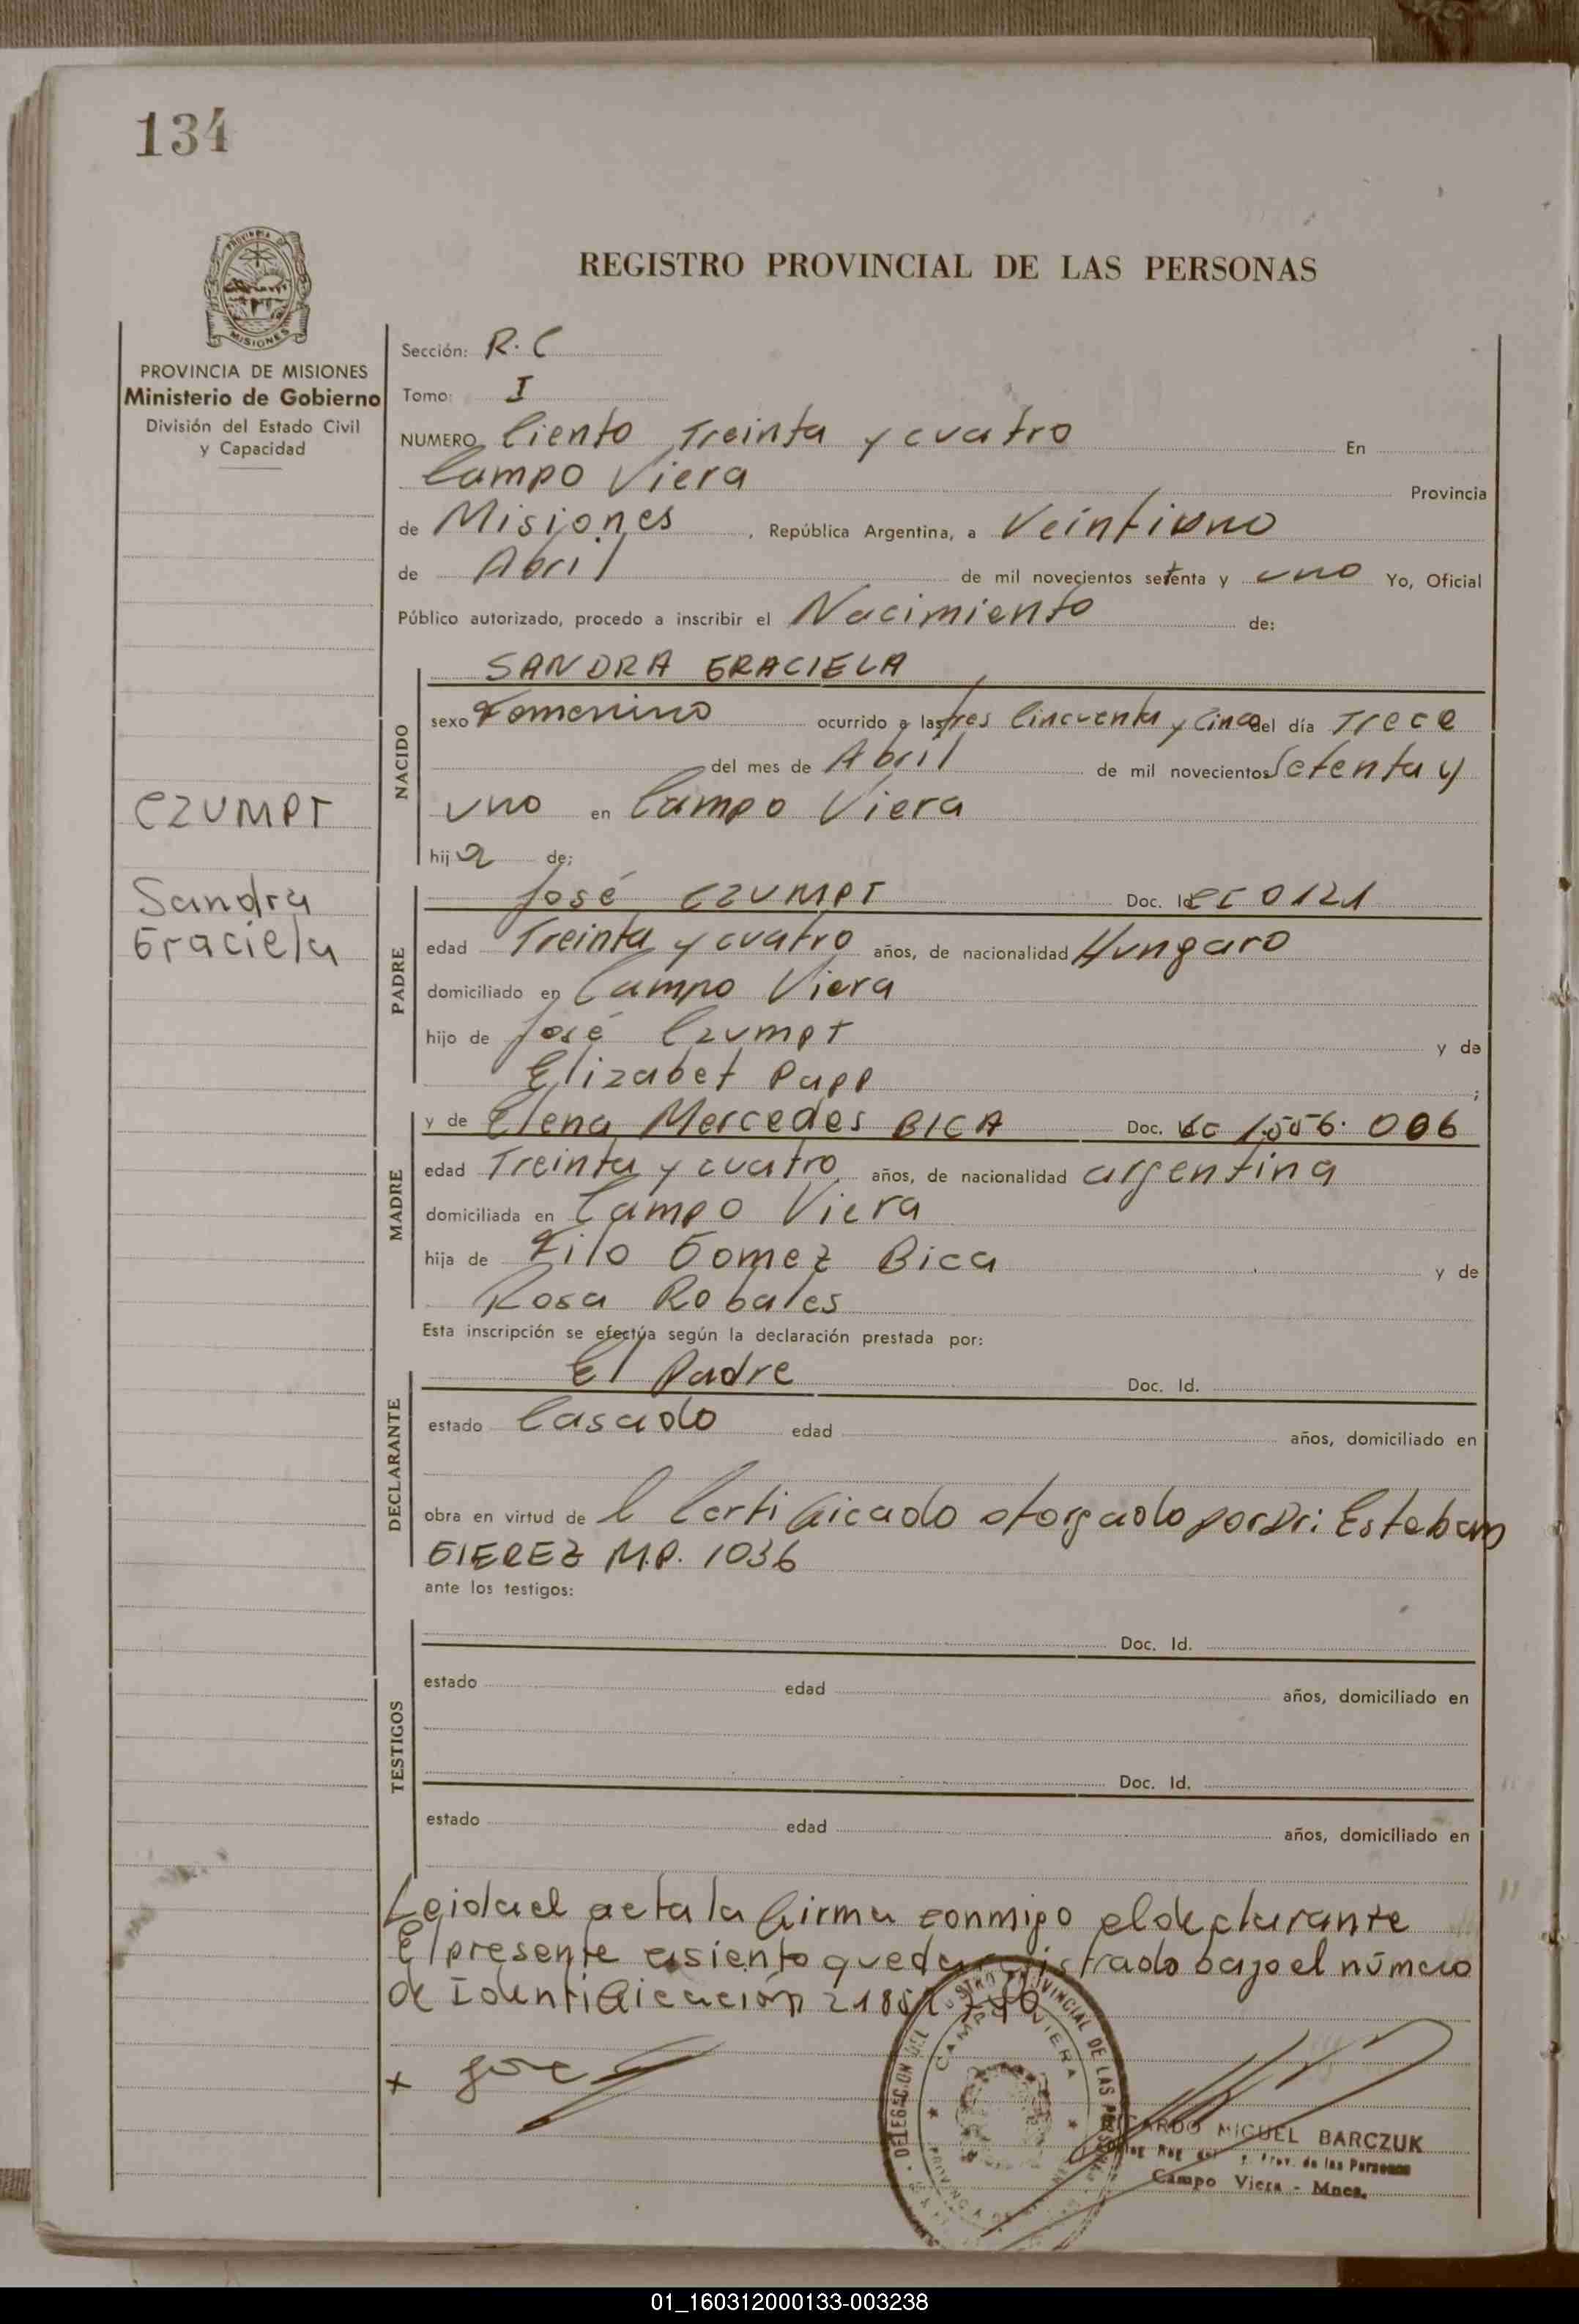 134
PROVINCIA DE
MISIONES
REGISTRO PROVINCIAL DE LAS PERSONAS
PROVINCIA DE MISIONES
Ministerio de Gobierno
División del Estado Civil
y Capacidad
CZUMPT
Sandra
Graciela
Sección: R. C
Tomo: I
NUMERO Ciento Treinta y cuatro En
Campo Viera Provincia
de Misiones, República Argentina, a Veintiuno
de Abril de mil novecientos setenta y uno Yo, Oficial
Público autorizado, procedo a inscribir el Nacimiento de:
NACIDO
SANDRA GRACIELA
sexo Femenino ocurrido a las tres Cincuenta y Cinco del día Trece
del mes de Abril de mil novecientos Setenta y
uno en Campo Viera
hija de:
PADRE
José CZUMPT Doc. Id. 0121
edad Treinta y cuatro años, de nacionalidad Hungaro
domiciliado en Campo Viera
hijo de José Czumpt y de
Elizabet Papp ;
MADRE
y de Elena Mercedes BICA Doc. 006
edad Treinta y cuatro años, de nacionalidad argentina
domiciliada en Campo Viera
hija de Filo Gomez Bica y de
Rosa Robales
Esta inscripción se efectúa según la declaración prestada por:
DECLARANTE
El Padre Doc. Id.
estado Casado edad años, domiciliado en
obra en virtud de l Certificado otorgado por Dr: Esteban
GIEREZ M.P. 1036
ante los testigos:
TESTIGOS
Doc. Id.
estado edad años, domiciliado en
Doc. Id.
estado edad años, domiciliado en
Leida el acta la firma conmigo el declarante
El presente asiento queda registrado bajo el número
de Identificación
x José
DELEGACION DEL REGISTRO PROVINCIAL DE LAS PERSONAS
CAMPO VIERA
RICARDO MIGUEL BARCZUK
Prov. de las Personas
Campo Viera - Mnes.
01_160312000133-003238